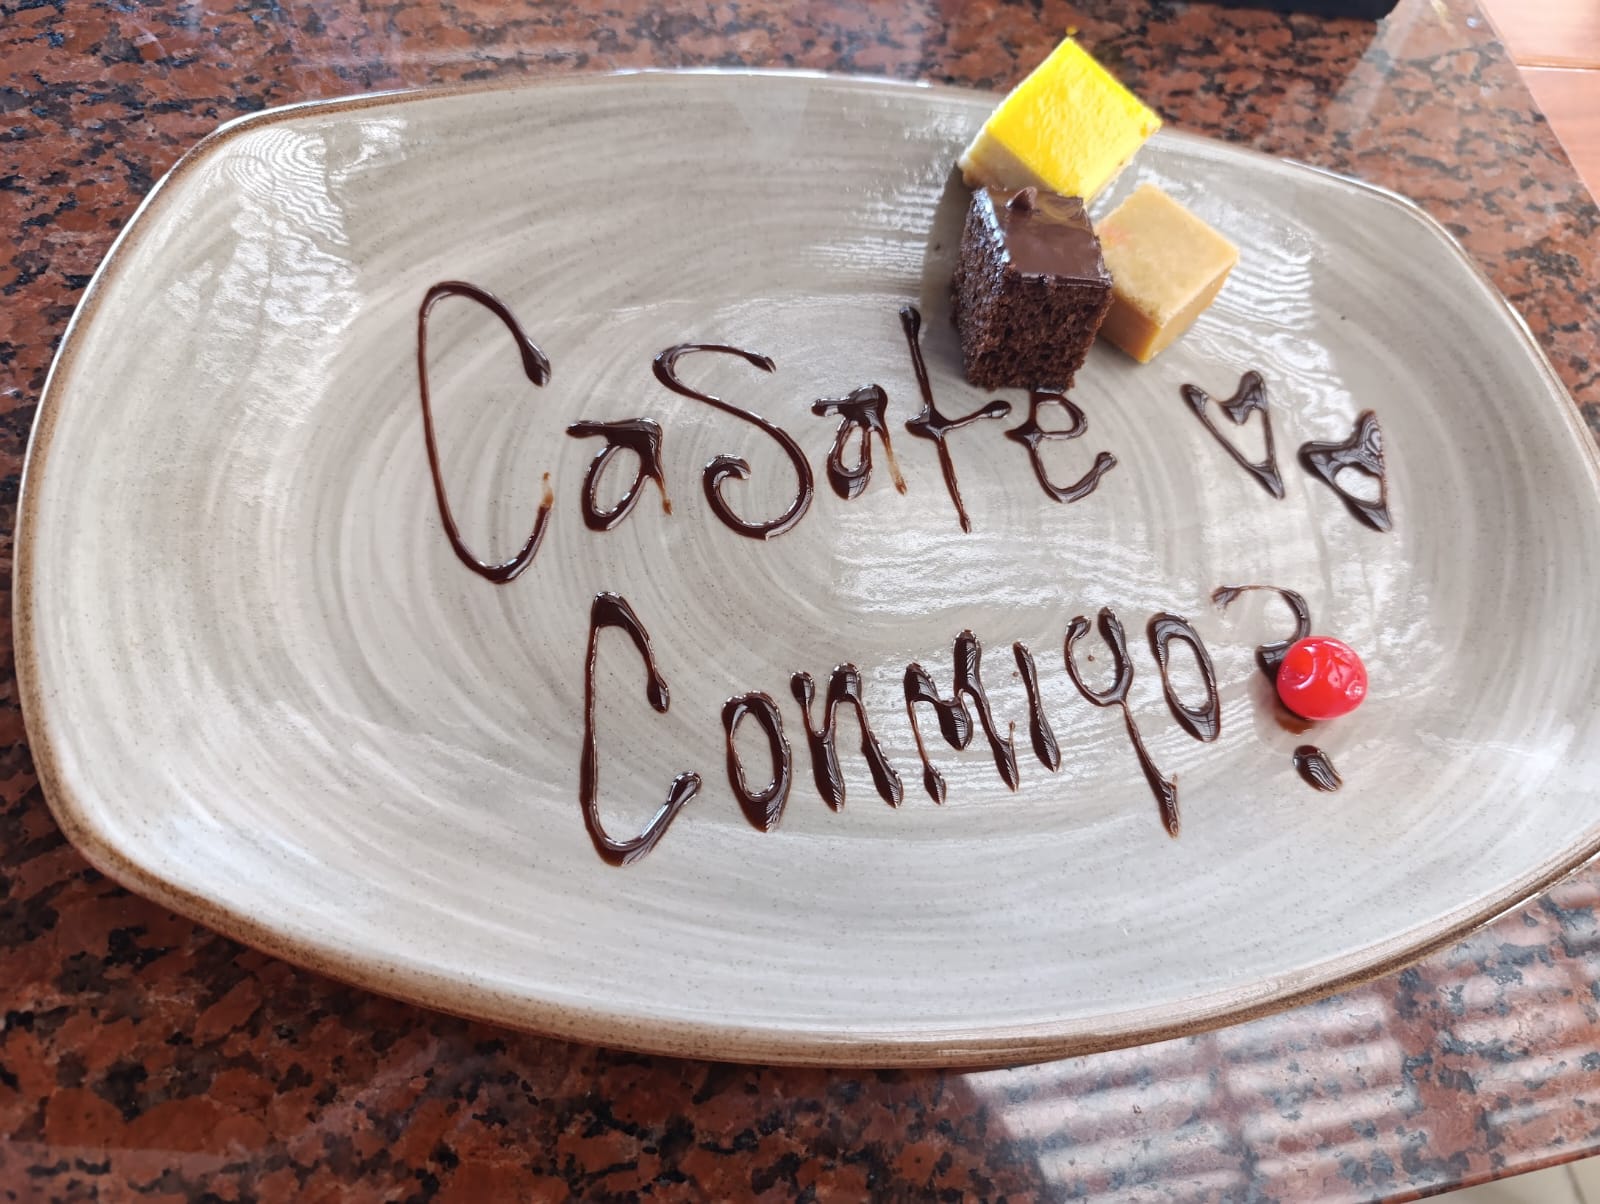 CaSate
Conmigo?